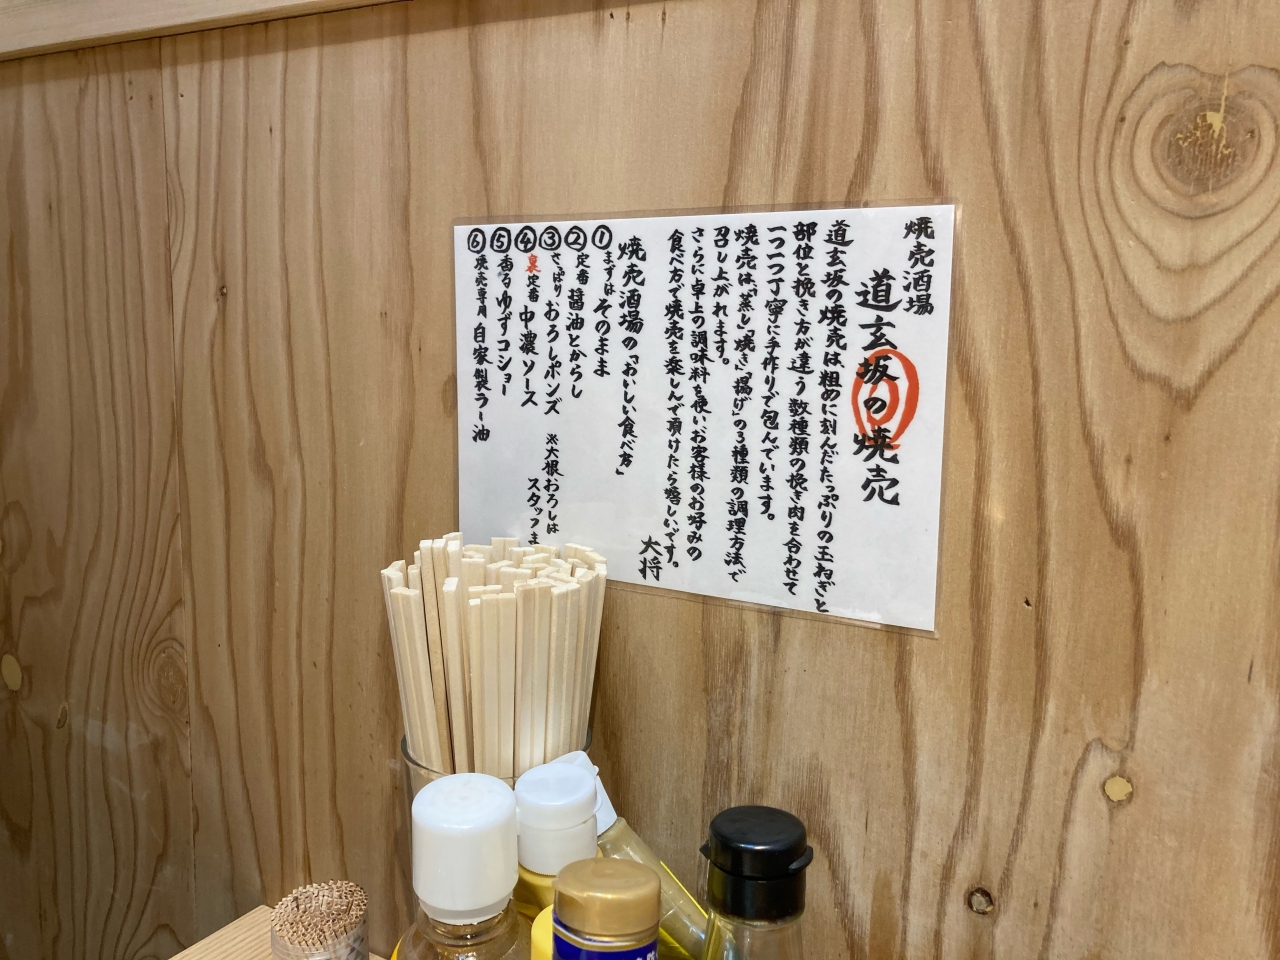 焼売酒場
道玄坂の焼売
道玄坂の焼売は粗めに刻んだたっぷりの玉ねぎと
部位と挽き方が違う数種類の挽き肉を合わせて
一つ一つ丁寧に手作りで包んでいます。
焼売は、「蒸し」「焼き」「揚げ」の3種類の調理方法で
召し上がれます。
さらに卓上の調味料を使い、お客様のお好みの
食べ方で焼売を楽しんで頂けたら嬉しいです。
大将
焼売酒場の「おいしい食べ方」
①まずはそのまま
②定番 醤油とからし
③さっぱり おろしポンズ ※大根おろしは
スタッフま
④裏定番 中濃ソース
⑤香る ゆずコショー
⑥焼売専用 自家製ラー油